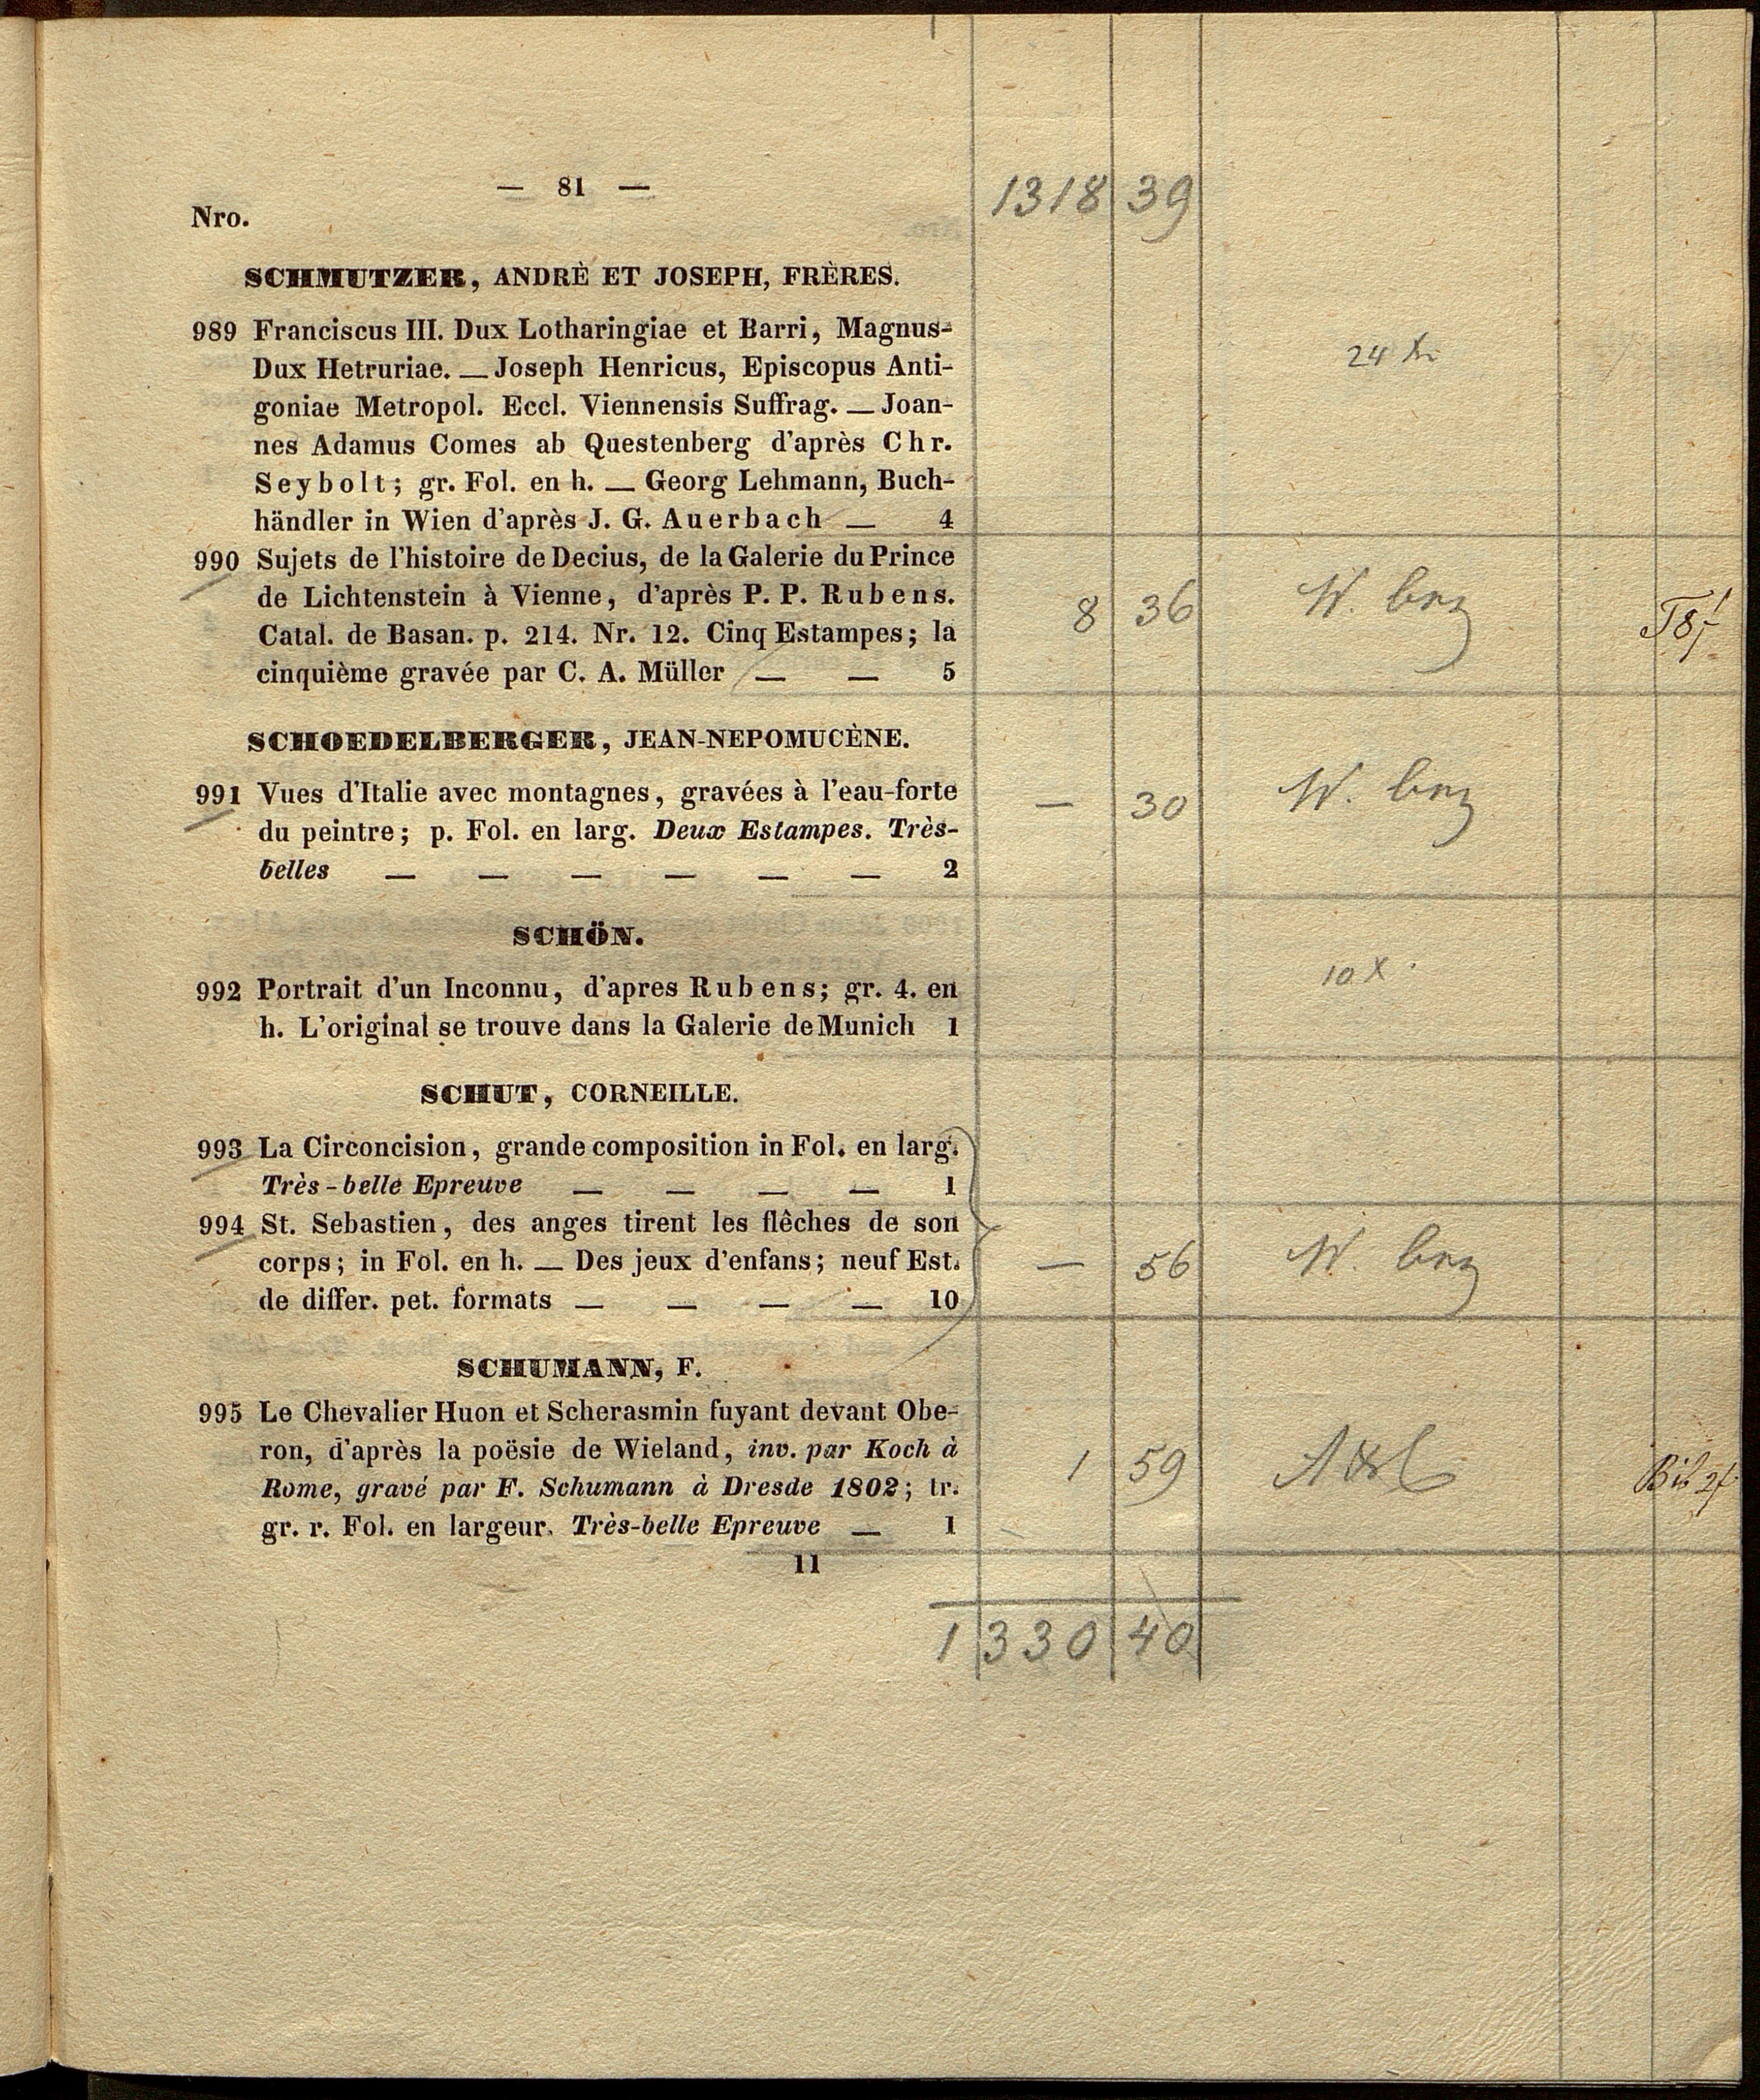 — 81 —
1318 39
Nro.
SCHMUTZER, ANDRÈ ET JOSEPH, FRÈRES.
989 Franciscus III. Dux Lotharingiae et Barri, Magnus-
Dux Hetruriae. — Joseph Henricus, Episcopus Anti-
24 Xr
goniae Metropol. Eccl. Viennensis Suffrag. — Joan-
nes Adamus Comes ab Questenberg d'après Chr.
Seybolt; gr. Fol. en h. — Georg Lehmann, Buch-
händler in Wien d'après J. G. Auerbach — 4
990 Sujets de l'histoire de Decius, de la Galerie du Prince
de Lichtenstein à Vienne, d'après P. P. Rubens.
8 36 W.
Catal. de Basan. p. 214. Nr. 12. Cinq Estampes; la
cinquième gravée par C. A. Müller — — 5
SCHOEDELBERGER, JEAN-NEPOMUCÈNE.
991 Vues d'Italie avec montagnes, gravées à l'eau-forte
— 30 W.
du peintre; p. Fol. en larg. Deux Estampes. Très-
belles — — — — — — 2
SCHÖN.
992 Portrait d'un Inconnu, d'apres Rubens; gr. 4. en
10 X
h. L'original se trouve dans la Galerie de Munich 1
SCHUT, CORNEILLE.
993 La Circoncision, grande composition in Fol. en larg.
Très-belle Epreuve — — — — 1
994 St. Sebastien, des anges tirent les flêches de son
corps; in Fol. en h. — Des jeux d'enfans; neuf Est.
— 56 W.
de differ. pet. formats — — — — 10
SCHUMANN, F.
995 Le Chevalier Huon et Scherasmin fuyant devant Obe-
ron, d'après la poësie de Wieland, inv. par Koch à
1 59
Rome, gravé par F. Schumann à Dresde 1802; tr.
gr. r. Fol. en largeur. Très-belle Epreuve — 1
11
1330 40